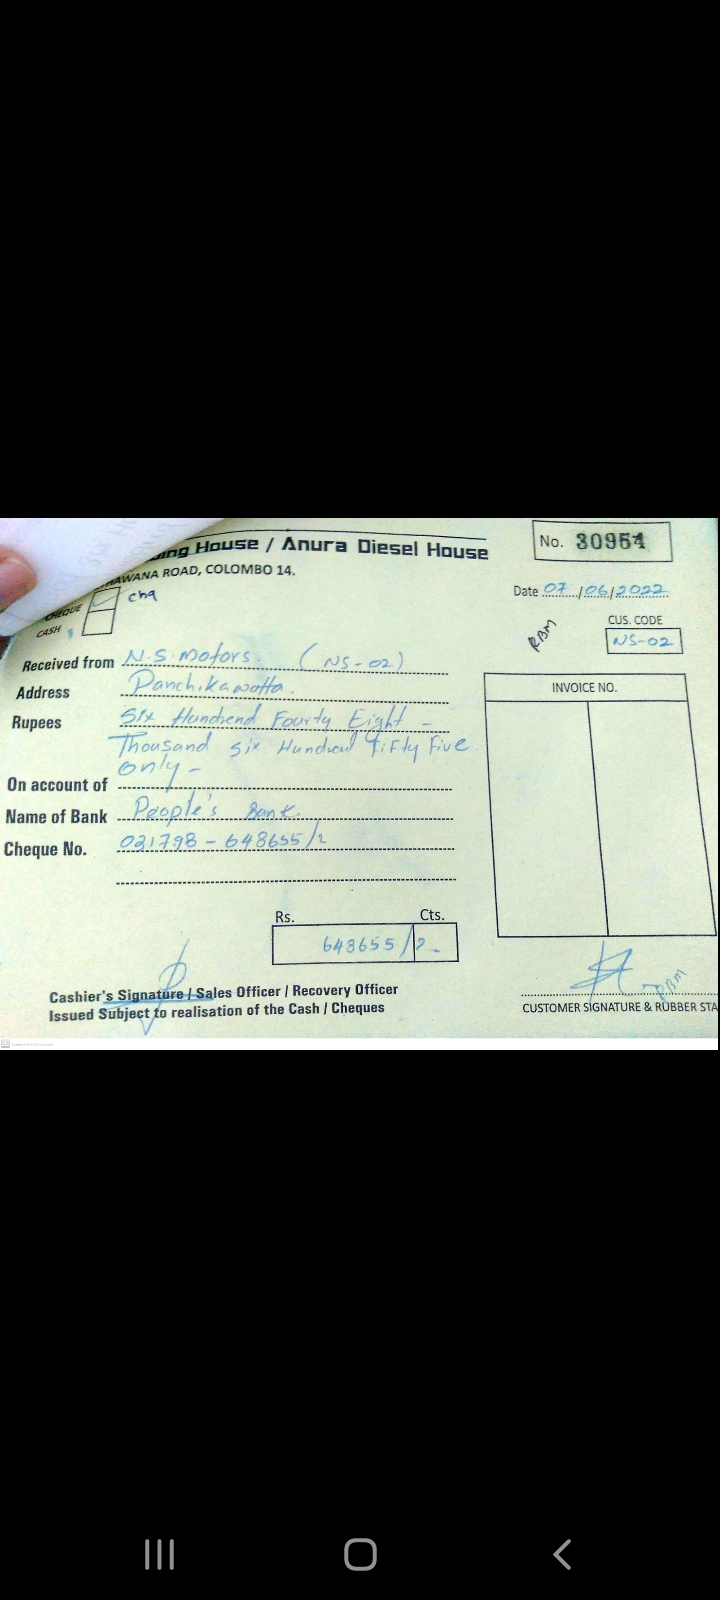 House / Anura Diesel House
ROAD, COLOMBO 14.
No. 30954
CHEQUE
chq
CASH
Date 07/06/2022
RBM
CUS. CODE
NS-02
Received from N.S. Motors. (NS-02)
Address Panchikawatta.
Rupees Six Hundrend Fourty Eight -
Thousand Six Hundred Fifty Five
only -
On account of
Name of Bank People's Bank
Cheque No. 021798 - 648655/2
INVOICE NO.
Rs. Cts.
648655/2-
Cashier's Signature / Sales Officer / Recovery Officer
Issued Subject to realisation of the Cash / Cheques
RBM
CUSTOMER SIGNATURE & RUBBER STA